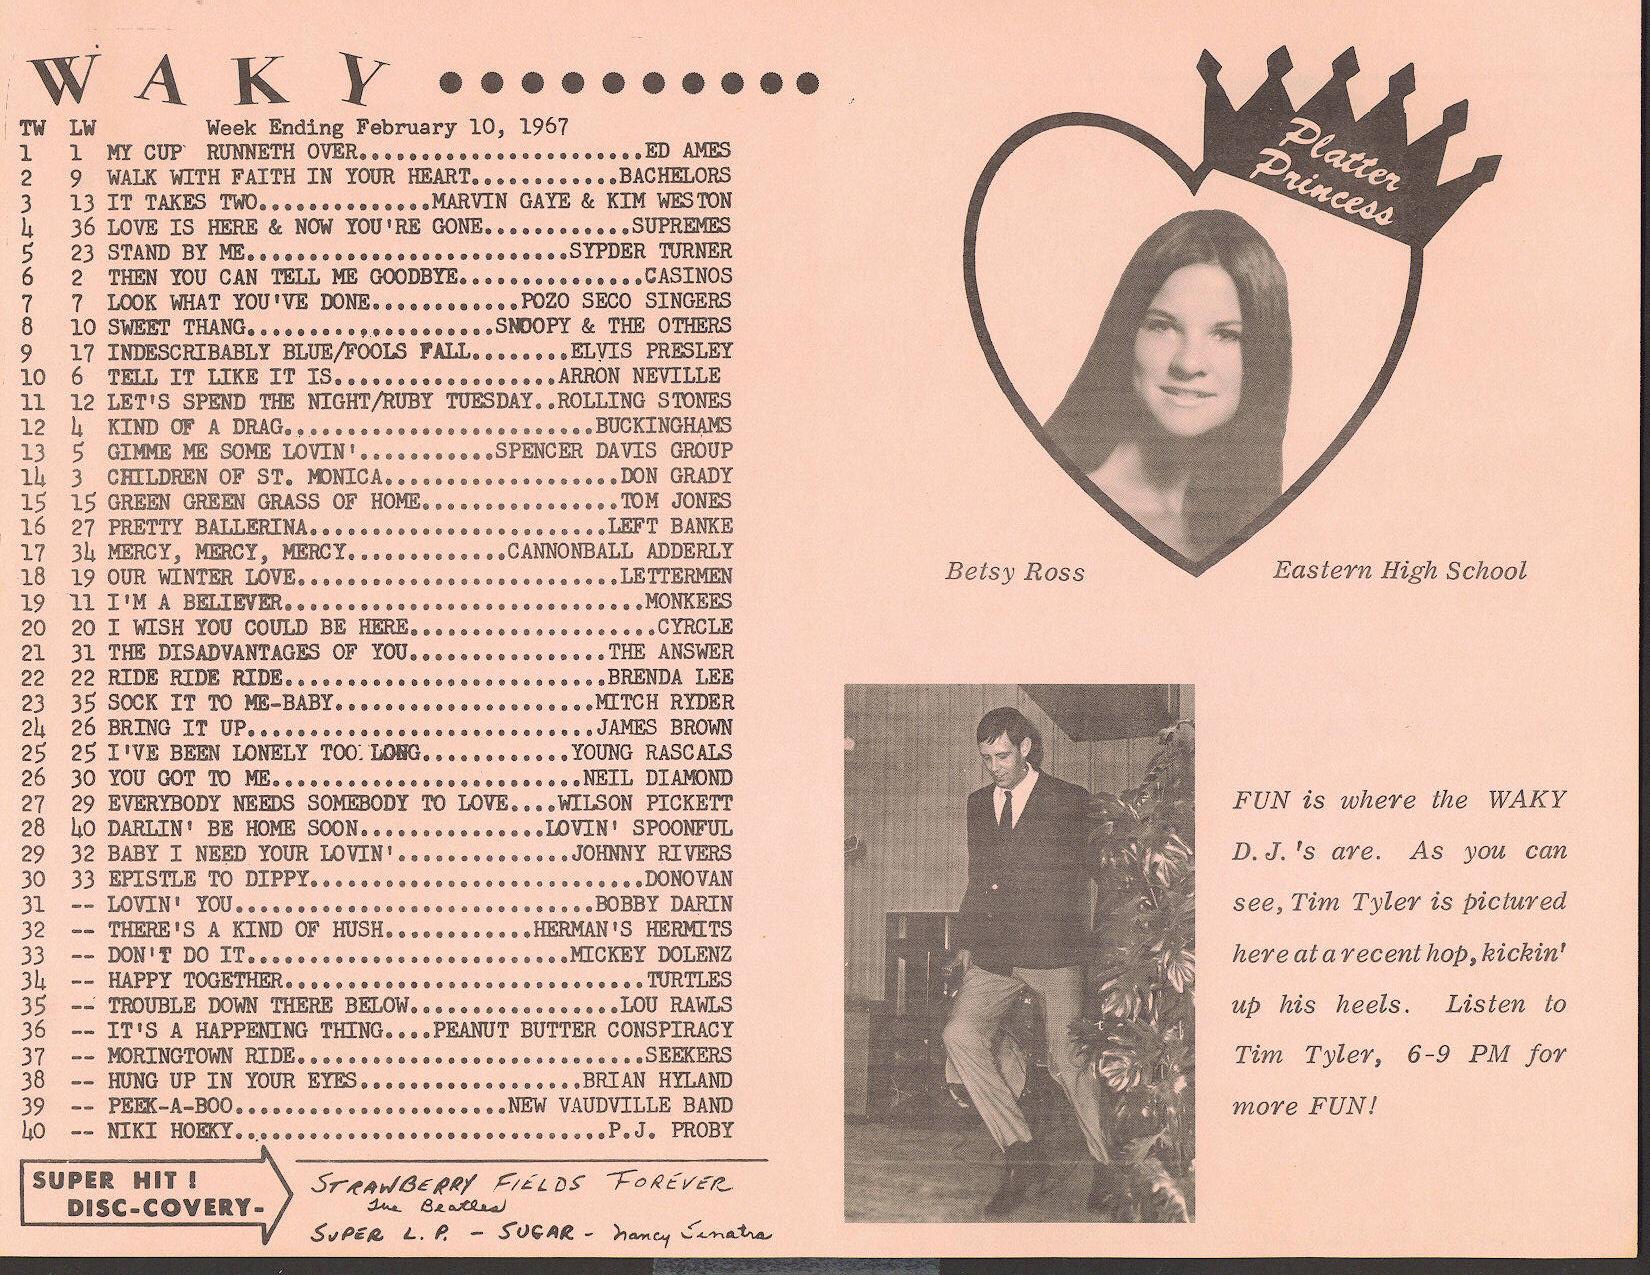 WAKY..........
TW LW Week Ending February 10, 1967
1 1 MY CUP RUNNETH OVER.......................ED AMES
2 9 WALK WITH FAITH IN YOUR HEART............BACHELORS
3 13 IT TAKES TWO..............MARVIN GAYE & KIM WESTON
4 36 LOVE IS HERE & NOW YOU'RE GONE............SUPREMES
5 23 STAND BY ME..........................SYPDER TURNER
6 2 THEN YOU CAN TELL ME GOODBYE...............CASINOS
7 7 LOOK WHAT YOU'VE DONE............POZO SECO SINGERS
8 10 SWEET THANG....................SNOOPY & THE OTHERS
9 17 INDESCRIBABLY BLUE/FOOLS FALL........ELVIS PRESLEY
10 6 TELL IT LIKE IT IS..................ARRON NEVILLE
11 12 LET'S SPEND THE NIGHT/RUBY TUESDAY..ROLLING STONES
12 4 KIND OF A DRAG.........................BUCKINGHAMS
13 5 GIMME ME SOME LOVIN'...........SPENCER DAVIS GROUP
14 3 CHILDREN OF ST. MONICA...................DON GRADY
15 15 GREEN GREEN GRASS OF HOME................TOM JONES
16 27 PRETTY BALLERINA........................LEFT BANKE
17 34 MERCY, MERCY, MERCY.............CANNONBALL ADDERLY
18 19 OUR WINTER LOVE..........................LETTERMEN
19 11 I'M A BELIEVER.............................MONKEES
20 20 I WISH YOU COULD BE HERE....................CYRCLE
21 31 THE DISADVANTAGES OF YOU................THE ANSWER
22 22 RIDE RIDE RIDE..........................BRENDA LEE
23 35 SOCK IT TO ME-BABY.....................MITCH RYDER
24 26 BRING IT UP............................JAMES BROWN
25 25 I'VE BEEN LONELY TOO LONG............YOUNG RASCALS
26 30 YOU GOT TO ME.........................NEIL DIAMOND
27 29 EVERYBODY NEEDS SOMEBODY TO LOVE....WILSON PICKETT
28 40 DARLIN' BE HOME SOON...............LOVIN' SPOONFUL
29 32 BABY I NEED YOUR LOVIN'..............JOHNNY RIVERS
30 33 EPISTLE TO DIPPY...........................DONOVAN
31 -- LOVIN' YOU.............................BOBBY DARIN
32 -- THERE'S A KIND OF HUSH............HERMAN'S HERMITS
33 -- DON'T DO IT..........................MICKEY DOLENZ
34 -- HAPPY TOGETHER.............................TURTLES
35 -- TROUBLE DOWN THERE BELOW.................LOU RAWLS
36 -- IT'S A HAPPENING THING....PEANUT BUTTER CONSPIRACY
37 -- MORINGTOWN RIDE............................SEEKERS
38 -- HUNG UP IN YOUR EYES..................BRIAN HYLAND
39 -- PEEK-A-BOO......................NEW VAUDVILLE BAND
40 -- NIKI HOEKY..............................P.J. PROBY
SUPER HIT!
DISC-COVERY-
STRAWBERRY FIELDS FOREVER
The Beatles
SUPER L.P. - SUGAR - Nancy Sinatra
Platter
Princess
Betsy Ross Eastern High School
FUN is where the WAKY
D.J.'s are. As you can
see, Tim Tyler is pictured
here at a recent hop, kickin'
up his heels. Listen to
Tim Tyler, 6-9 PM for
more FUN!